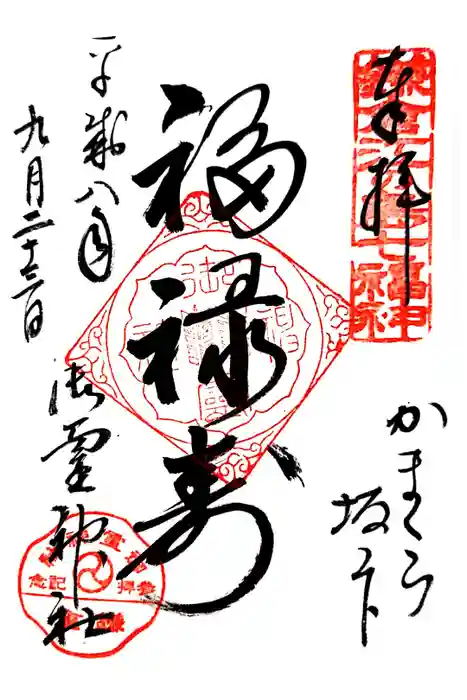 奉拝
鎌倉江ノ島七福神
かまくら
坂ノ下
福禄寿
平成八年
九月二十三日
御霊神社
参拝記念